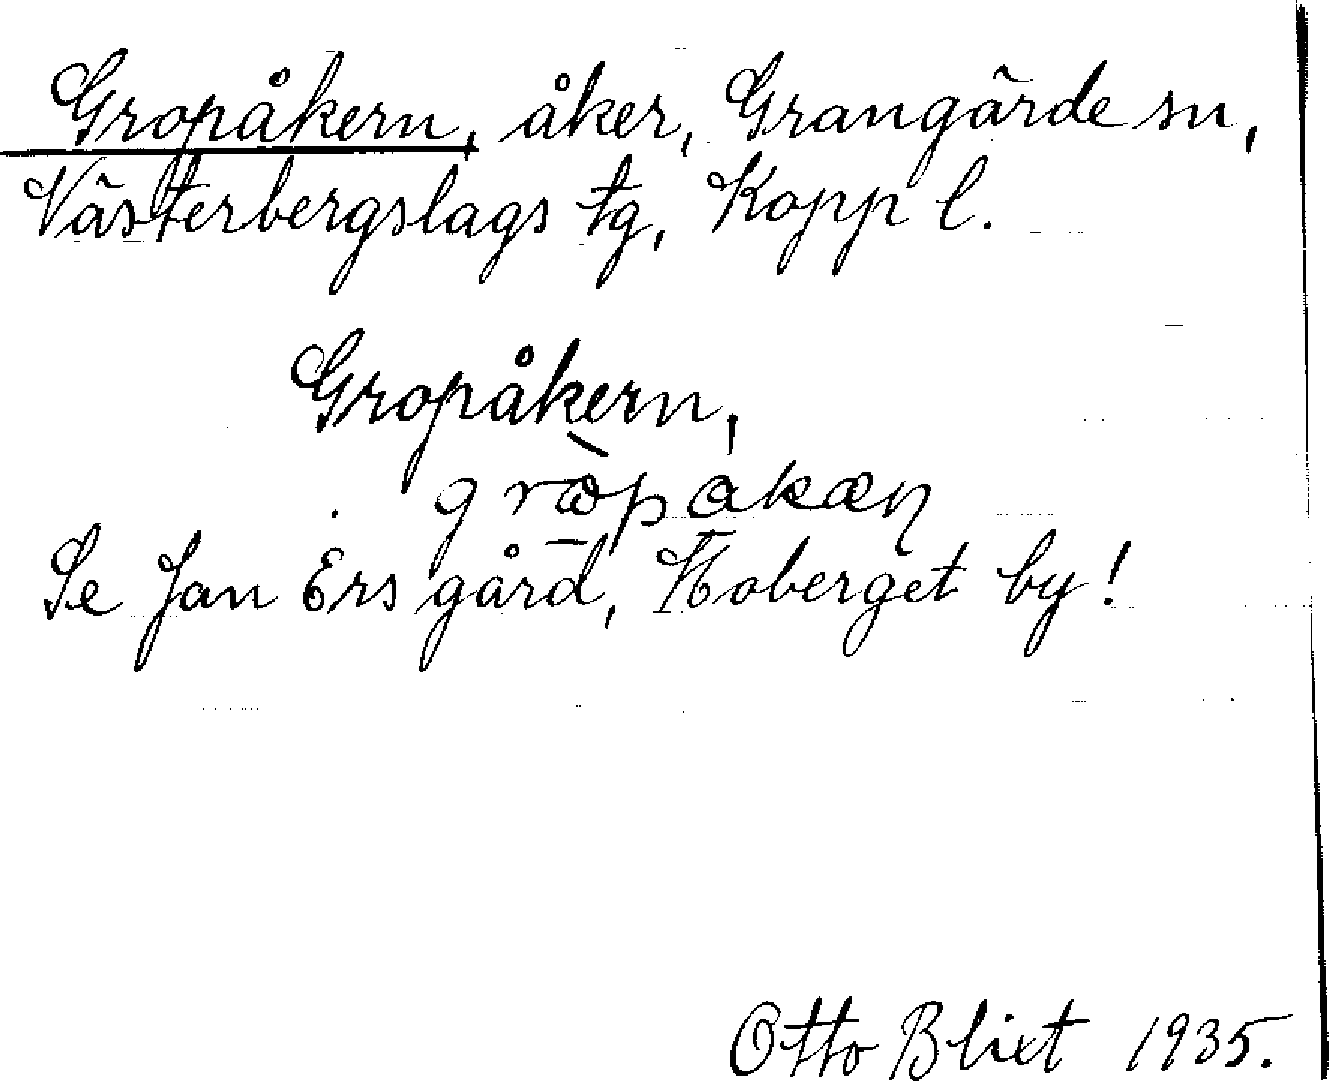 Gropåkern, åker, Grangärde sn,
Västerbergslags tg, Kopp l.
Gropåkern,
Se Jan Ers gård, Hoberget by!
Otto Blixt 1935.